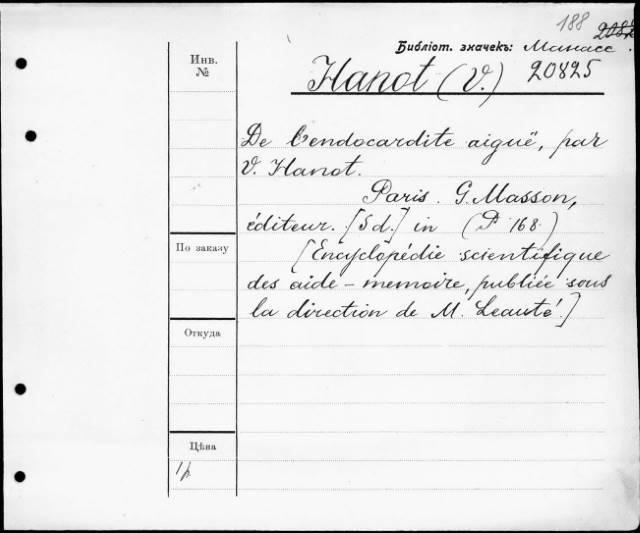 188
Библіот. значекъ: Манасс.
Инв.
№
Hanot (V.) 20825
De l'endocardite aiguë, par
V. Hanot.
Paris. G. Masson,
éditeur. [S d.] in (P 168.)
По заказу
[Encyclopédie scientifique
des aide-memoire, publiée sous
la direction de M. Leauté.]
Откуда
Цѣна
1 р